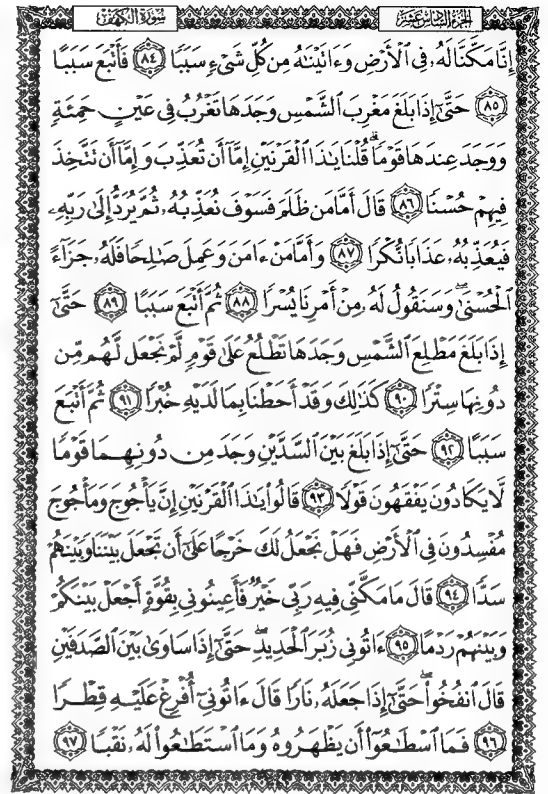 الجزء السادس عشر
سورة الكهف
إِنَّا مَكَّنَّا لَهُۥ فِى ٱلْأَرْضِ وَءَاتَيْنَٰهُ مِن كُلِّ شَىْءٍ سَبَبًا ﴿٨٤﴾ فَأَتْبَعَ سَبَبًا
﴿٨٥﴾ حَتَّىٰٓ إِذَا بَلَغَ مَغْرِبَ ٱلشَّمْسِ وَجَدَهَا تَغْرُبُ فِى عَيْنٍ حَمِئَةٍ
وَوَجَدَ عِندَهَا قَوْمًا ۗ قُلْنَا يَٰذَا ٱلْقَرْنَيْنِ إِمَّآ أَن تُعَذِّبَ وَإِمَّآ أَن تَتَّخِذَ
فِيهِمْ حُسْنًا ﴿٨٦﴾ قَالَ أَمَّا مَن ظَلَمَ فَسَوْفَ نُعَذِّبُهُۥ ثُمَّ يُرَدُّ إِلَىٰ رَبِّهِۦ
فَيُعَذِّبُهُۥ عَذَابًا نُّكْرًا ﴿٨٧﴾ وَأَمَّا مَنْ ءَامَنَ وَعَمِلَ صَٰلِحًا فَلَهُۥ جَزَآءً
ٱلْحُسْنَىٰ ۖ وَسَنَقُولُ لَهُۥ مِنْ أَمْرِنَا يُسْرًا ﴿٨٨﴾ ثُمَّ أَتْبَعَ سَبَبًا ﴿٨٩﴾ حَتَّىٰٓ
إِذَا بَلَغَ مَطْلِعَ ٱلشَّمْسِ وَجَدَهَا تَطْلُعُ عَلَىٰ قَوْمٍ لَّمْ نَجْعَل لَّهُم مِّن
دُونِهَا سِتْرًا ﴿٩٠﴾ كَذَٰلِكَ وَقَدْ أَحَطْنَا بِمَا لَدَيْهِ خُبْرًا ﴿٩١﴾ ثُمَّ أَتْبَعَ
سَبَبًا ﴿٩٢﴾ حَتَّىٰٓ إِذَا بَلَغَ بَيْنَ ٱلسَّدَّيْنِ وَجَدَ مِن دُونِهِمَا قَوْمًا
لَّا يَكَادُونَ يَفْقَهُونَ قَوْلًا ﴿٩٣﴾ قَالُوا۟ يَٰذَا ٱلْقَرْنَيْنِ إِنَّ يَأْجُوجَ وَمَأْجُوجَ
مُفْسِدُونَ فِى ٱلْأَرْضِ فَهَلْ نَجْعَلُ لَكَ خَرْجًا عَلَىٰٓ أَن تَجْعَلَ بَيْنَنَا وَبَيْنَهُمْ
سَدًّا ﴿٩٤﴾ قَالَ مَا مَكَّنِّى فِيهِ رَبِّى خَيْرٌ فَأَعِينُونِى بِقُوَّةٍ أَجْعَلْ بَيْنَكُمْ
وَبَيْنَهُمْ رَدْمًا ﴿٩٥﴾ ءَاتُونِى زُبَرَ ٱلْحَدِيدِ ۖ حَتَّىٰٓ إِذَا سَاوَىٰ بَيْنَ ٱلصَّدَفَيْنِ
قَالَ ٱنفُخُوا۟ ۖ حَتَّىٰٓ إِذَا جَعَلَهُۥ نَارًا قَالَ ءَاتُونِىٓ أُفْرِغْ عَلَيْهِ قِطْرًا
﴿٩٦﴾ فَمَا ٱسْطَٰعُوٓا۟ أَن يَظْهَرُوهُ وَمَا ٱسْتَطَٰعُوا۟ لَهُۥ نَقْبًا ﴿٩٧﴾